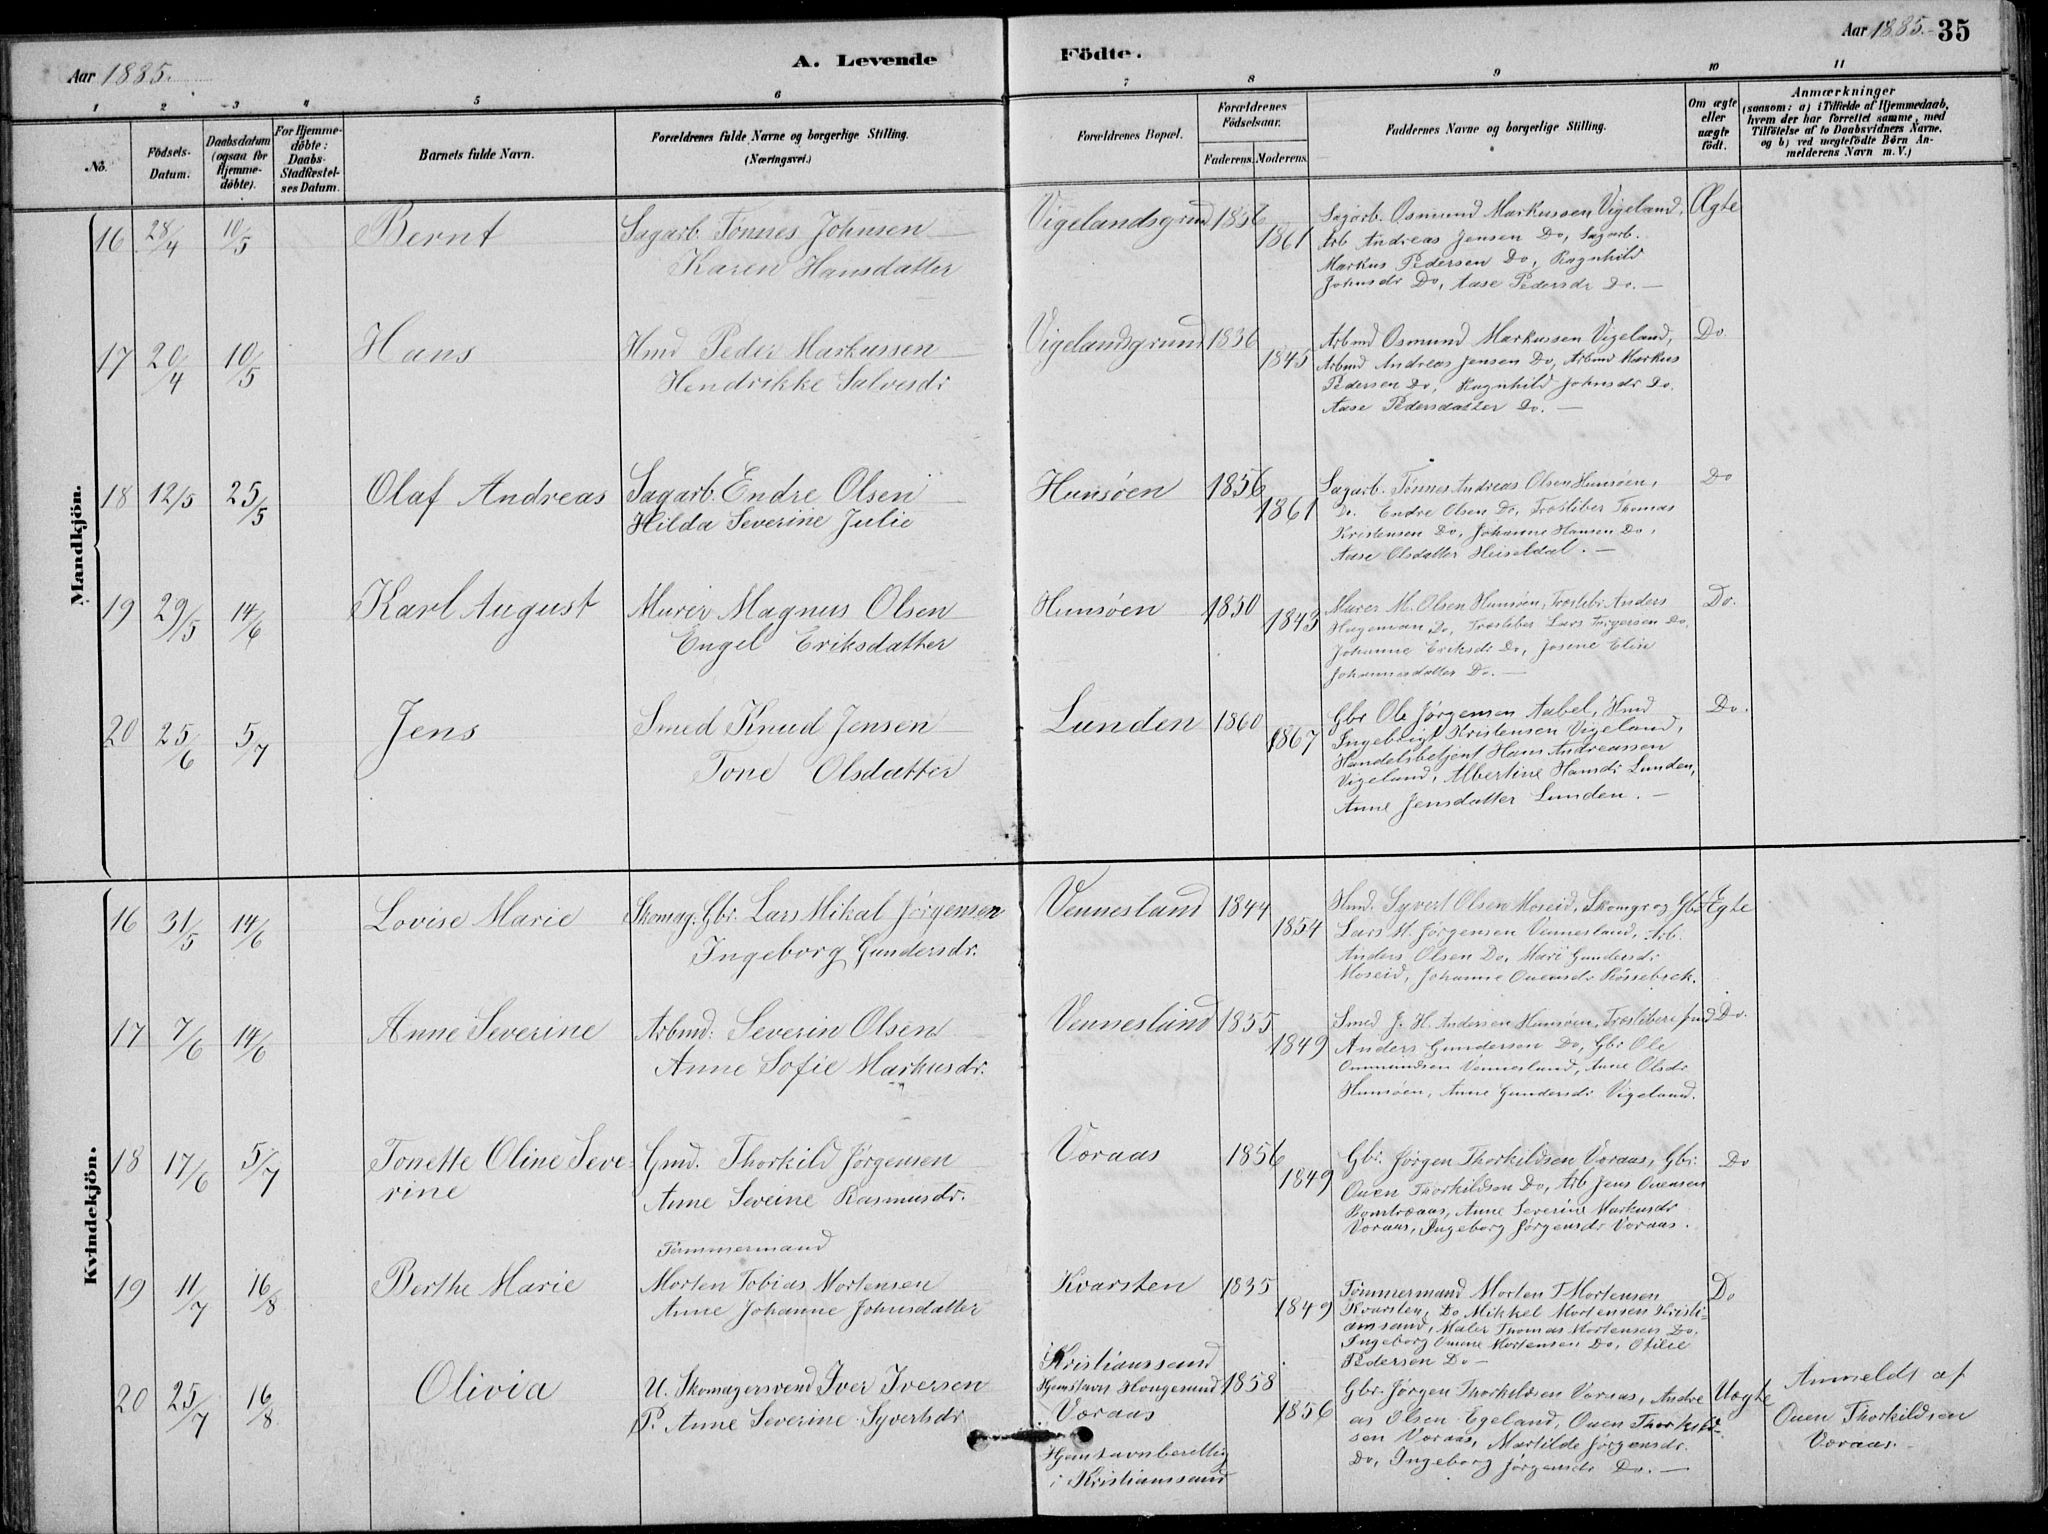 Aar 1885.
A. Levende
Födte.
Aar 1885. 35
1 2 3 4 5 6 7 8 9 10 11
No.
Födsels-
Datum.
Daabsdatum
(ogsaa for
Hjemme-
døbte).
For Hjemme-
døbte:
Daabs-
Stadfæstel-
ses Datum.
Barnets fulde Navn.
Forældrenes fulde Navne og borgerlige Stilling.
(Næringsvei.)
Forældrenes Bopæl.
Forældrenes
Födselsaar.
Faderens. Moderens.
Faddernes Navne og borgerlige Stilling.
Om ægte
eller
uægte
födt.
Anmærkninger
(saasom: a) i Tilfælde af Hjemmedaab,
hvem der har forrettet samme, med
Tilföielse af to Daabsvidners Navne.
og b) ved uægtefödte Börn An-
melderens Navn m. V.)
Mandkjön.
16 28/4 10/5 Bernt
Sagarb. Tønnes Johnsen
Karen Hansdatter
Vigelandsgrund 1856
1861
Sagarb. Osmund Markussen Vigeland,
Arb Andreas Jensen Do, Sagarb.
Markus Pedersen Do, Ragnhild
Johnsdr Do, Aase Pedersdr Do. —
Ægte
17 20/4 10/5 Hans
Hmd Peder Markussen
Hendrikke Salvesdr
Vigelandsgrund 1836
1845
Arbmd Osmund Markussen Vigeland,
Arbmd Andreas Jensen Do, Arbmd Markus
Pedersen Do, Ragnhild Johnsdr Do.
Aase Pedersdatter Do. —
Do.
18 12/5 25/5 Olaf Andreas
Sagarb. Endre Olsen
Hilda Severine Julie
Hunsøen 1856
1861
Sagarb. Tønnes Andreas Olsen Hunsøen,
Do. Endre Olsen Do, Træsliber Thomas
Kristensen Do, Johanne Hansen Do,
Aase Olsdatter Heiseldal. —
Do
19 29/5 14/6 Karl August
Murer Magnus Olsen
Engel Eriksdatter
Hunsøen 1850
1843
Murer M. Olsen Hunsøen, Træslibr Anders
Hageman Do, Træsliber Lars Torgersen Do,
Johanne Eriksdr Do, Josine Elise
Johannesdatter Do. —
Do.
20 25/6 5/7 Jens
Smed Knud Jensen
Tone Olsdatter
Lunden 1860
1867
Gbr Ole Jørgensen Aabel, Hmd
Ingebrigt Kristensen Vigeland,
Handelsbetjent Hans Andreassen
Vigeland, Albertine Hansdr Lunden,
Anne Jensdatter Lunden. —
Do.
Kvindekjön.
16 31/5 14/6 Lovise Marie
Skomag. Gbr. Lars Mikal Jørgensen
Ingeborg Gundersdr.
Vennesland 1844
1854
Hmd. Syvert Olsen Moseid, Skomgr og Gbr
Lars M. Jørgensen Vennesland, Arb.
Anders Olsen Do, Mari Gundersdr
Moseid, Johanne Ouensdr Røssebæk.
Egte
17 7/6 14/6 Anne Severine
Arbmd: Severin Olsen
Anne Sofie Markusdr.
Vennesland 1855
1849
Smed J. H. Andersen Hunsøen, Træslibere fmd
Anders Gundersen Do, Gbr Ole
Ommundsen Vennesland, Anne Olsdr
Hunsøen, Anne Gundersdr Vigeland.
Do.
18 17/6 5/7 Tonette Oline Seve-
rine
Gmd. Thorkild Jørgensen
Anne Seveine Rasmusdr.
Voraas 1856
1849
Gbr. Jørgen Thorkildsen Voraas, Gbr.
Ouen Thorkildsen Do, Arb Jens Ouensen
Bomtræaas, Anne Severine Markusdr
Voraas, Ingeborg Jørgensdr Voraas.
Do
19 11/7 16/8 Berthe Marie
Tømmermand
Morten Tobias Mortensen
Anne Johanne Johnsdatter
Kvarsten 1835
1849
Tømmermand Morten T Mortensen
Kvarsten, Do Mikkel Mortensen Kristi-
ansand, Maler Thomas Mortensen Do,
Ingeborg Mortensen Do, Otilie
Pedersen Do —
Do
20 25/7 16/8 Olivia
U. Skomagersvend Iver Iversen
P. Anne Severine Syvertsdr
i Kristianssand
Hjemstavn Hougesund
Voraas
Hjemstavnberettig
i Kristianssand
1858
1856
Gbr. Jørgen Thorkildsen Voraas, Andre
as Olsen Egeland, Ouen Thorkild-
sen Voraas, Martilde Jørgensdr.
Do, Ingeborg Jørgensdr Do. —
Uægte
Anmeldt af
Ouen Thorkildsen
Voraas.